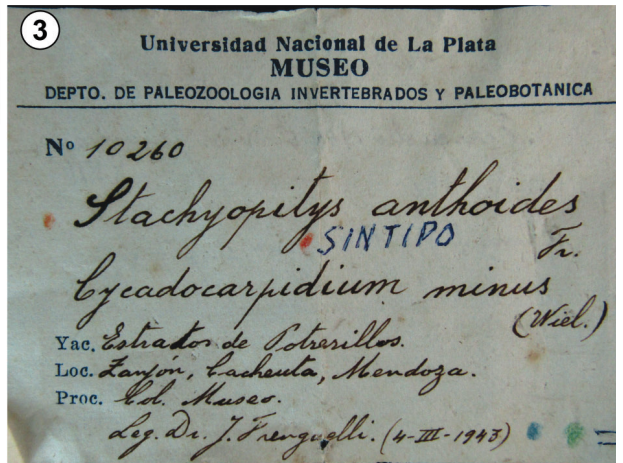 3
Universidad Nacional de La Plata
MUSEO
DEPTO. DE PALEOZOOLOGIA INVERTEBRADOS Y PALEOBOTANICA
Nº 10260
Stachyopitys anthoides
SINTIPO Fr.
Cycadocarpidium minus
(Wiel.)
Yac. Estrados de Potrerillos.
Loc. Zanjón, Cacheuta, Mendoza.
Proc. Col. Museo.
Leg. Dr. J. Frenguelli. (4-III-1943)